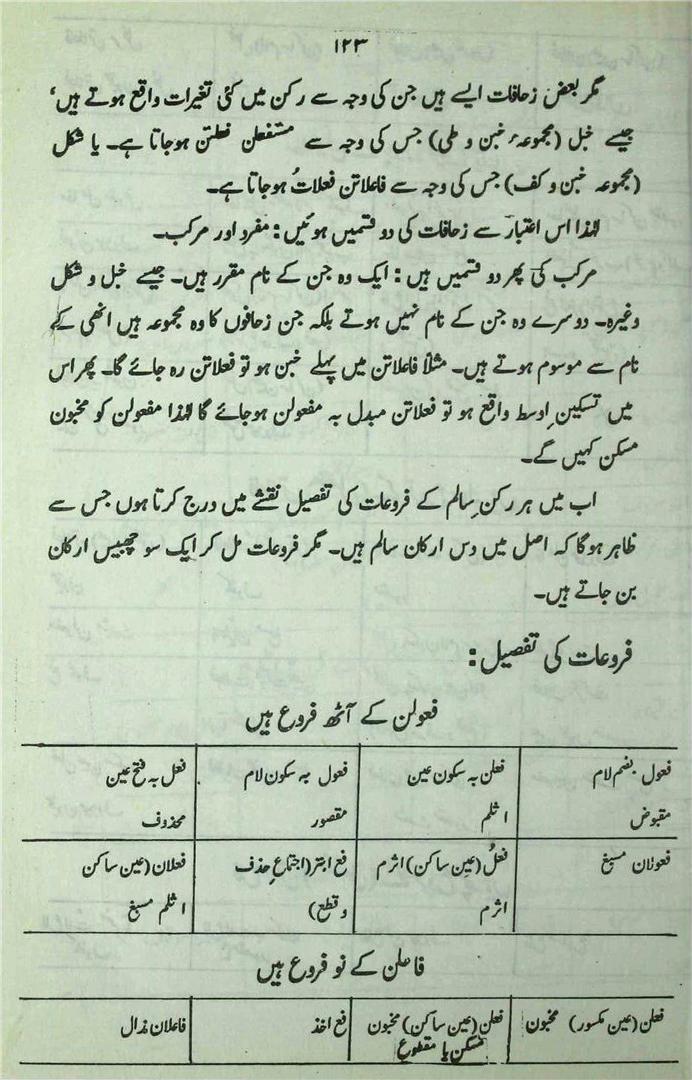 ۱۲۳
مگر بعض زحافات ایسے ہیں جن کی وجہ سے رکن میں کئی تغیرات واقع ہوتے ہیں،
جیسے خبل (مجموعۂ خبن و طی) جس کی وجہ سے مستفعلن فعلتن ہوجاتا ہے۔ یا شکل
(مجموعہ خبن و کف) جس کی وجہ سے فاعلاتن فعلاتُ ہوجاتا ہے۔
لہٰذا اس اعتبار سے زحافات کی دو قسمیں ہوئیں: مفرد اور مرکب۔
مرکب کی پھر دو قسمیں ہیں: ایک وہ جن کے نام مقرر ہیں۔ جیسے خبل و شکل
وغیرہ۔ دوسرے وہ جن کے نام نہیں ہوتے بلکہ جن زحافوں کا وہ مجموعہ ہیں انھی کے
نام سے موسوم ہوتے ہیں۔ مثلاً فاعلاتن میں پہلے خبن ہو تو فعلاتن رہ جائے گا۔ پھر اس
میں تسکینِ اوسط واقع ہو تو فعلاتن مبدل بہ مفعولن ہوجائے گا لہٰذا مفعولن کو مخبون
مسکن کہیں گے۔
اب میں ہر رکنِ سالم کے فروعات کی تفصیل نقشے میں درج کرتا ہوں جس سے
ظاہر ہوگا کہ اصل میں دس ارکان سالم ہیں۔ مگر فروعات مل کر ایک سو چھبیس ارکان
بن جاتے ہیں۔
فروعات کی تفصیل:
فعولن کے آٹھ فروع ہیں
فعول بضم لام
مقبوض
فعلن بہ سکون عین
اثلم
فعول بہ سکون لام
مقصور
فعل بہ فتح عین
محذوف
فعولان مسبغ
فعلُ (عین ساکن) اثرم
اثرم
فع ابتر (اجتماعِ حذف
و قطع)
فعلان (عین ساکن
اثلم مسبغ
فاعلن کے نو فروع ہیں
فعلن (عین مکسور) مخبون
فعلن (عین ساکن) مخبون
مسکن یا مقطوع
فع اخذ
فاعلان مذال